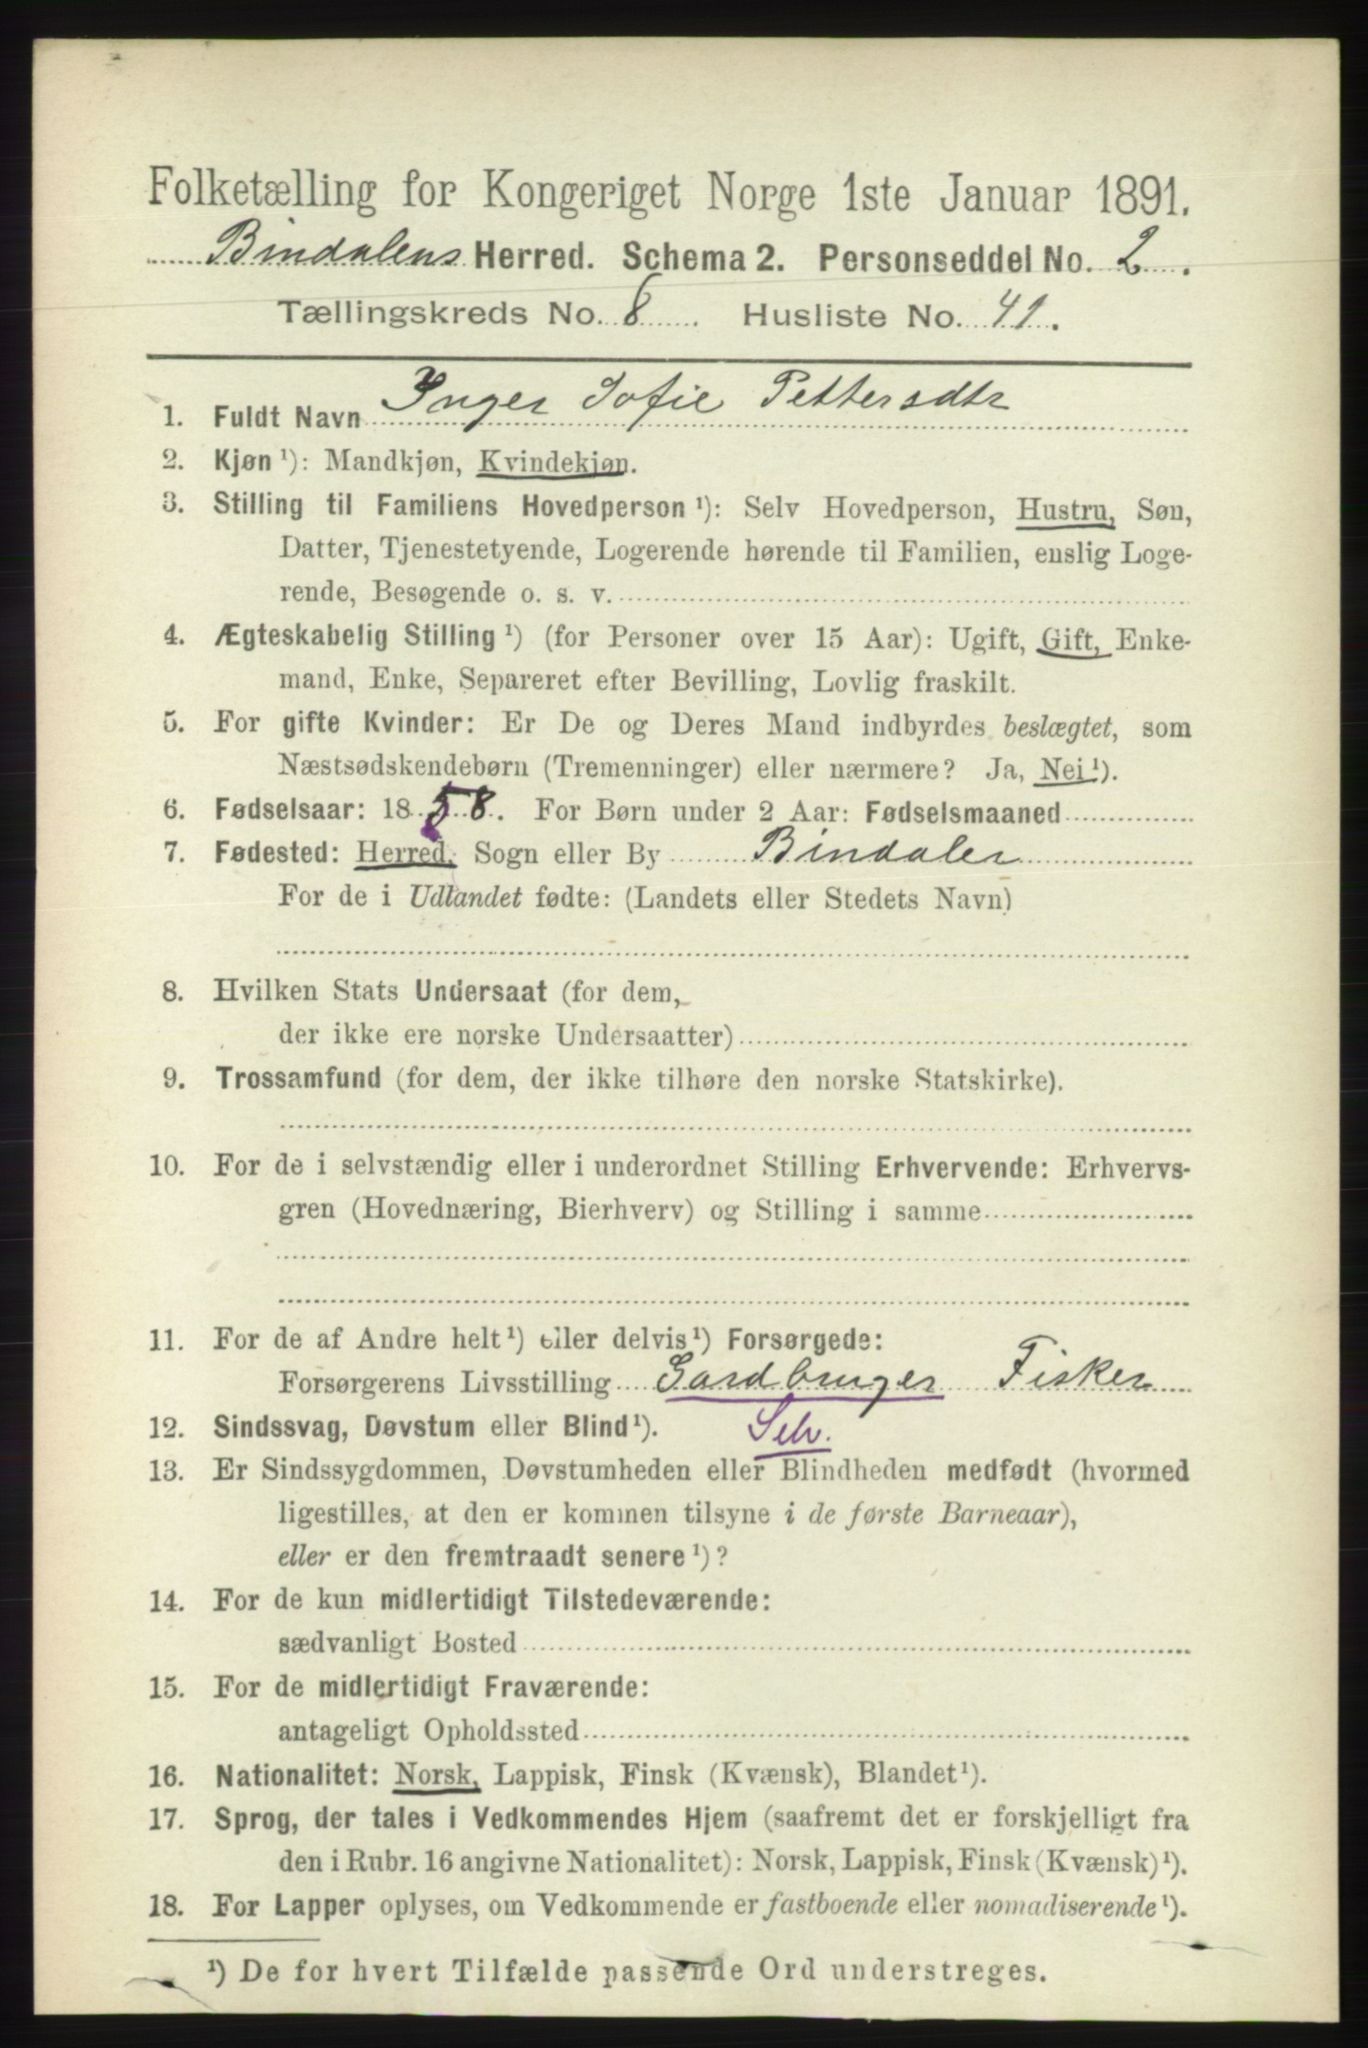 Folketælling for Kongeriget Norge 1ste Januar 1891.
Bindalens Herred. Schema 2. Personseddel No. 2.
Tællingskreds No. 8. Husliste No. 41.
1. Fuldt Navn Inger Sofie Pettersdtr
2. Kjøn ¹): Mandkjøn, Kvindekjøn.
3. Stilling til Familiens Hovedperson ¹): Selv Hovedperson, Hustru, Søn,
Datter, Tjenestetyende, Logerende hørende til Familien, enslig Loge-
rende, Besøgende o. s. v.
4. Ægteskabelig Stilling ¹) (for Personer over 15 Aar): Ugift, Gift, Enke-
mand, Enke, Separeret efter Bevilling, Lovlig fraskilt.
5. For gifte Kvinder: Er De og Deres Mand indbyrdes beslægtet, som
Næstsødskendebørn (Tremenninger) eller nærmere? Ja, Nei ¹).
6. Fødselsaar: 1858. For Børn under 2 Aar: Fødselsmaaned
7. Fødested: Herred, Sogn eller By Bindalen
For de i Udlandet fødte: (Landets eller Stedets Navn)
8. Hvilken Stats Undersaat (for dem,
der ikke ere norske Undersaatter)
9. Trossamfund (for dem, der ikke tilhøre den norske Statskirke).
10. For de i selvstændig eller i underordnet Stilling Erhvervende: Erhvervs-
gren (Hovednæring, Bierhverv) og Stilling i samme
11. For de af Andre helt ¹) eller delvis ¹) Forsørgede:
Forsørgerens Livsstilling Gardbruger Fisker
12. Sindssvag, Døvstum eller Blind ¹). Selv.
13. Er Sindssygdommen, Døvstumheden eller Blindheden medfødt (hvormed
ligestilles, at den er kommen tilsyne i de første Barneaar),
eller er den fremtraadt senere ¹)?
14. For de kun midlertidigt Tilstedeværende:
sædvanligt Bosted
15. For de midlertidigt Fraværende:
antageligt Opholdssted
16. Nationalitet: Norsk, Lappisk, Finsk (Kvænsk), Blandet ¹).
17. Sprog, der tales i Vedkommendes Hjem (saafremt det er forskjelligt fra
den i Rubr. 16 angivne Nationalitet): Norsk, Lappisk, Finsk (Kvænsk) ¹).
18. For Lapper oplyses, om Vedkommende er fastboende eller nomadiserende ¹).
¹) De for hvert Tilfælde passende Ord understreges.